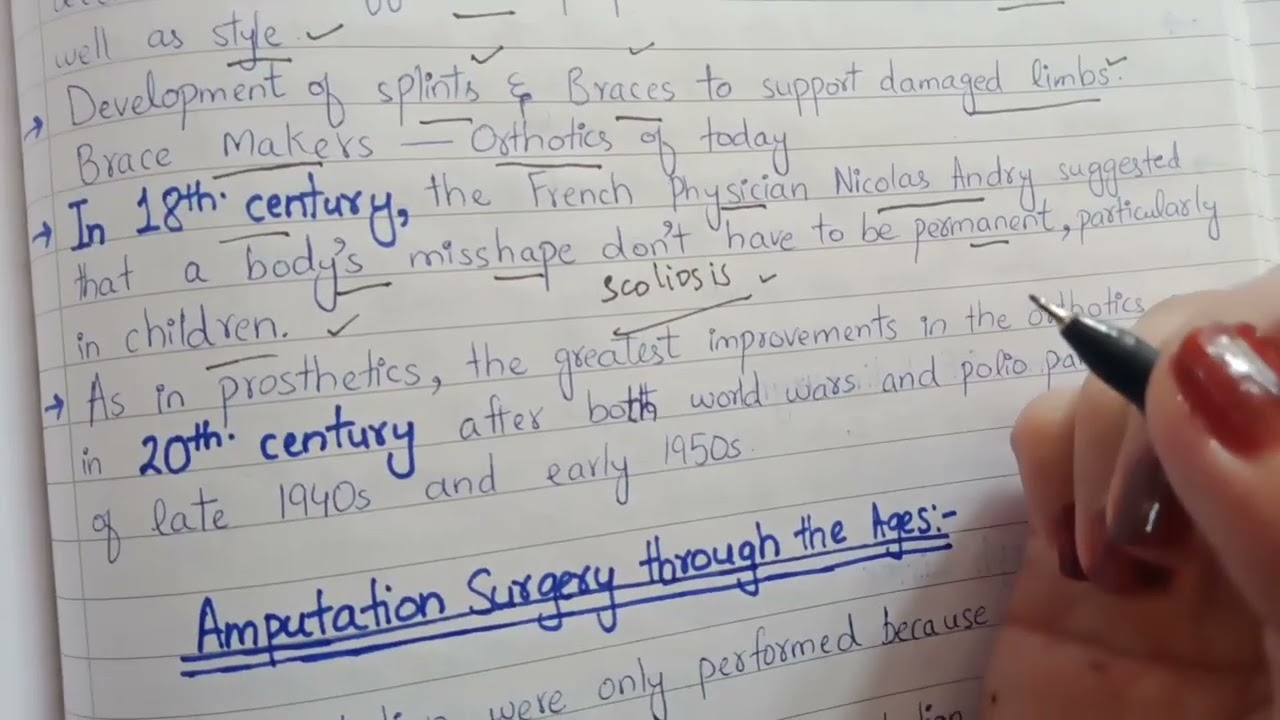 well as style.
→ Development of splints & Braces to support damaged limbs.
Brace Makers — Orthotics of today
→ In 18th. century, the French Physician Nicolas Andry suggested
that a body's misshape don't have to be permanent, particularly
in children.
scoliosis
→ As in prosthetics, the greatest improvements in the orthotics
in 20th. century after both world wars and polio
of late 1940s and early 1950s.
Amputation Surgery through the Ages:-
were only performed because